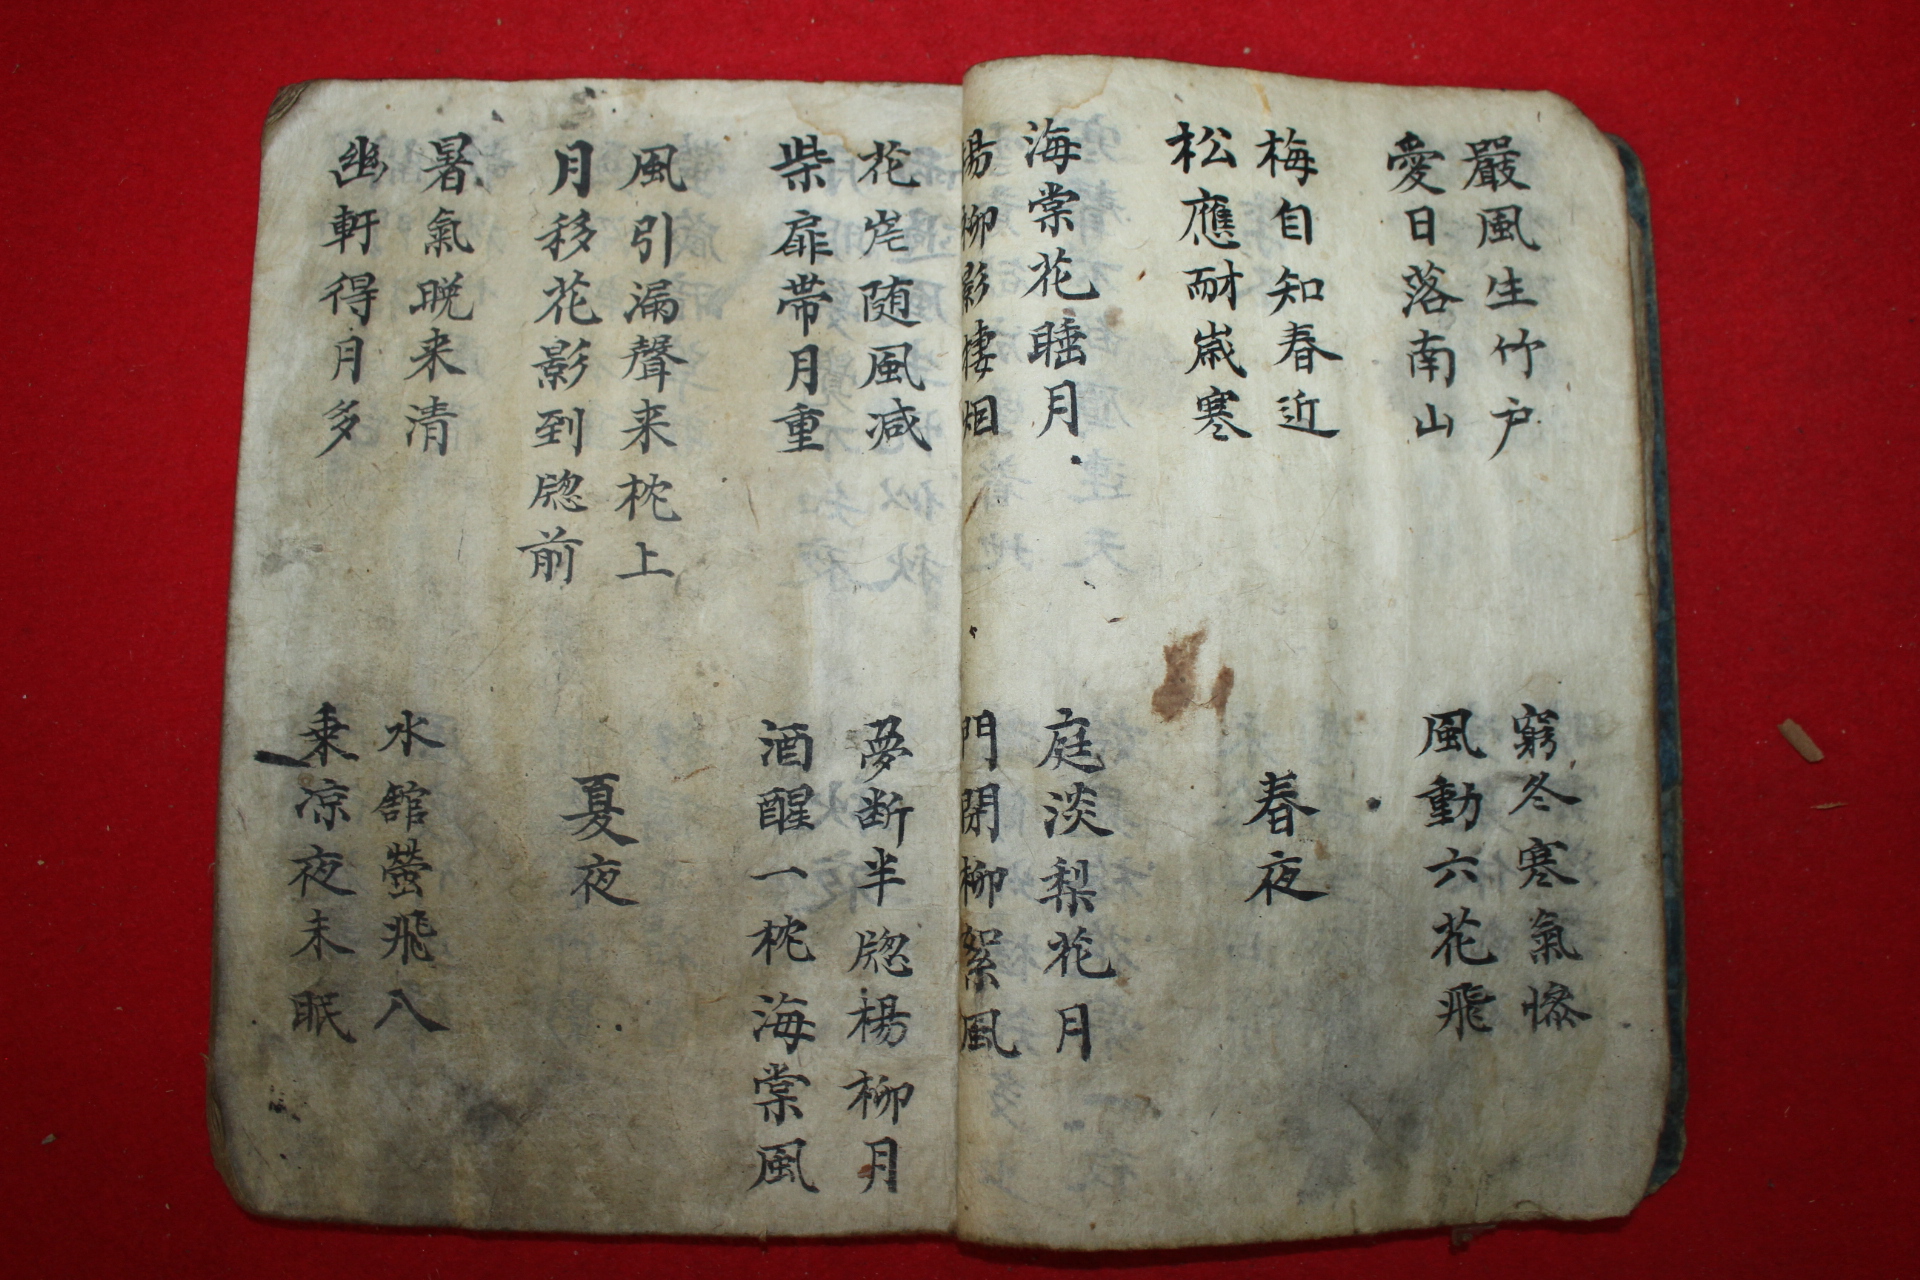 嚴風生竹戶
愛日落南山
窮冬寒氣慘
風動六花飛
梅自知春近
松應耐嵗寒
春夜
海棠花睡月
楊柳影棲烟
庭淡梨花月
門閉柳絮風
花随風减
柴扉帶月重
夢断半牕楊柳月
酒醒一枕海棠風
風引漏聲来枕上
月移花影到牕前
夏夜
暑氣晩来清
幽軒得月多
水舘螢飛入
乗凉夜未眠